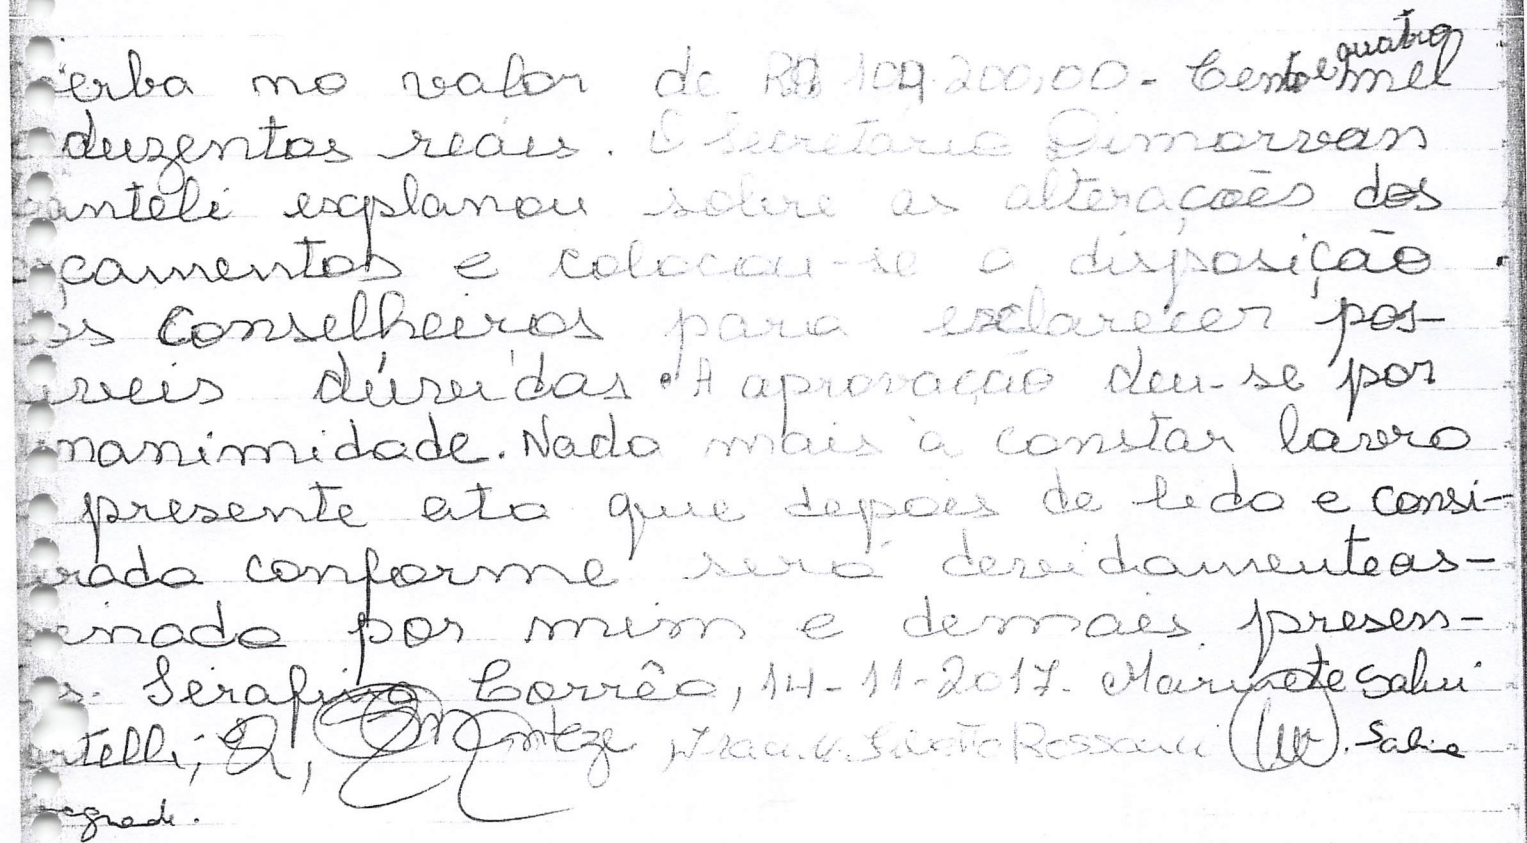 erba no valor de R$ 104.200,00 - Cento e quatro mil
duzentos reais. O Secretário Dimorvan
anteli explanou sobre as alterações dos
çamentos e colocou-se a disposição
os Conselheiros para esclarecer pos-
iveis dúvidas. A aprovação deu-se por
nanimidade. Nada mais a constar lavro
presente ata que depois de lida e consi-
rada conforme será devidamente as-
inada por mim e demais presen-
s. Serafina Corrêa, 14-11-2017. Marinete Salvi
rtelli,